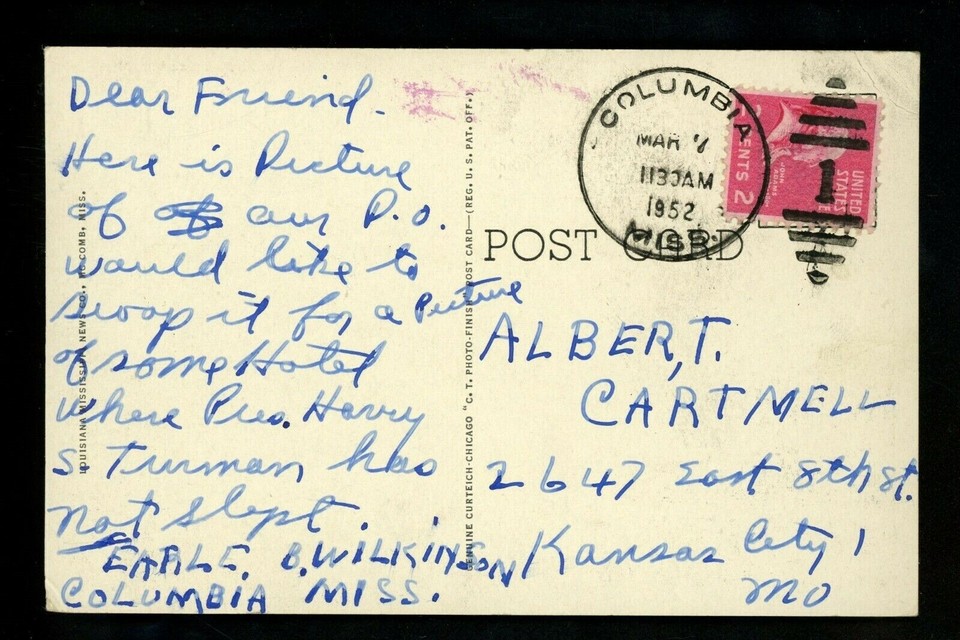 Dear Friend -
Here is Picture
of our P.O.
would like to
swop it for a Picture
of some Hotel
where Pres. Harry
S Turman has
not slept.
EARLE. B. WILKINSON
COLUMBIA MISS.
LOUISIANA MISSISSIPPI NEWS CO., MC COMB, MISS.
GENUINE CURTEICH-CHICAGO "C. T. PHOTO-FINISH" POST CARD—(REG. U. S. PAT. OFF.)
COLUMBIA
MAR 7
1130AM
1952
MISS.
1
UNITED
STATES
JOHN
ADAMS
CENTS 2
POST CARD
ALBERT, T.
CARTMELL
2647 East 8th St.
Kansas City 1
Mo